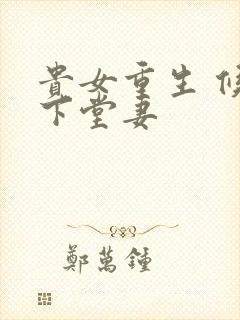 貴女重生 侯
下堂妻
鄭萬鍾